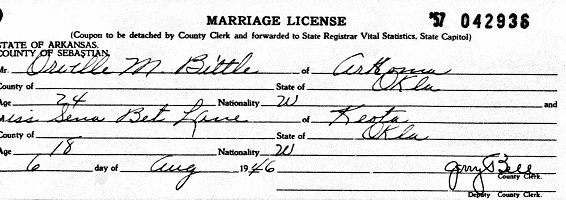 MARRIAGE LICENSE '57 042936
(Coupon to be detached by County Clerk and forwarded to State Registrar Vital Statistics, State Capitol)
STATE OF ARKANSAS,
COUNTY OF SEBASTIAN,
Mr. Orville M. Bittle of Arkoma
County of State of Okla
Age 24 Nationality W and
iss Sena Bet Lane of Keota
County of State of Okla
Age 18 Nationality W
6 day of Aug 1946 Jerry Bell
County Clerk.
Deputy County Clerk.